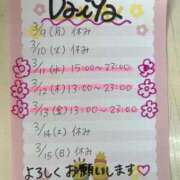 3/9(月)休み
3/10(火)休み
3/11(水)15:00~23:00
3/12(木)13:00~23:00
3/13(金)13:00~23:00
3/14(土)休み
3/15(日)休み
よろしくお願いします♡